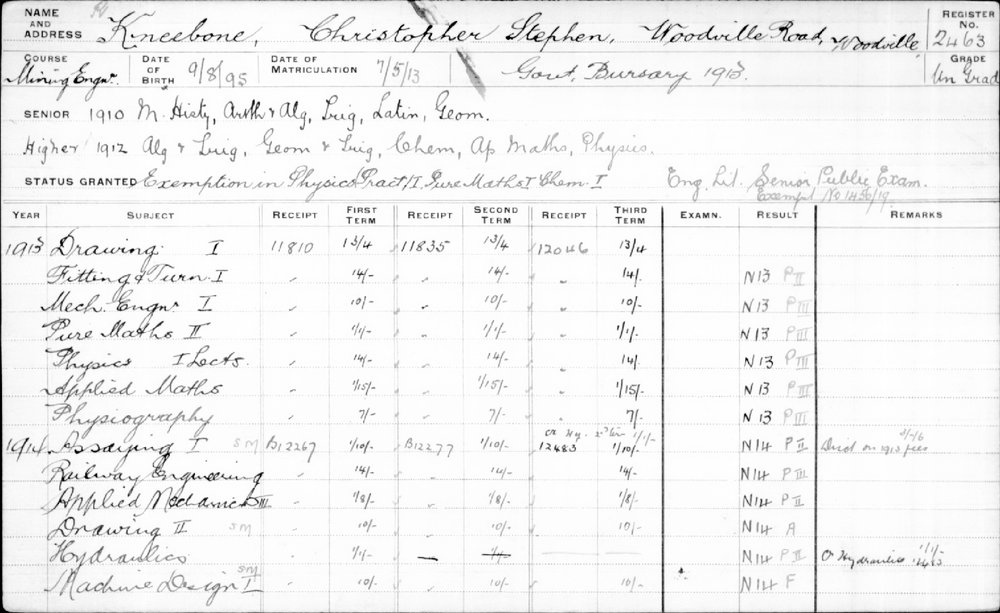 NAME AND ADDRESS Kneebone, Christopher Stephen, Woodville Road, Woodville REGISTER No. 2463
COURSE Mining Engnr. DATE OF BIRTH 9/8/95 DATE OF MATRICULATION 7/5/13 Govt. Bursary 1913 GRADE Un Grad
SENIOR 1910 M. Histy, Arth & Alg, Trig, Latin, Geom.
Higher 1912 Alg & Trig, Geom & Trig, Chem, Ap Maths, Physics.
STATUS GRANTED Exemption in Physics Pract I, Pure Maths I Chem. I Eng. Lit. Senior Public Exam.
Exempt No 1420/19
YEAR SUBJECT RECEIPT FIRST TERM RECEIPT SECOND TERM RECEIPT THIRD TERM EXAMN. RESULT REMARKS
1913 Drawing I 11810 13/4 11835 13/4 12046 13/4
Fitting & Turn. I " 14/- " 14/- " 14/- N13 P II
Mech. Engnr I " 10/- " 10/- " 10/- N13 P III
Pure Maths II " 1/1/- " 1/1/- " 1/1/- N13 P II
Physics I Lects. " 14/- " 14/- " 14/- N13 P III
Applied Maths " 1/15/- " 1/15/- " 1/15/- N13 P III
Physiography " 7/- " 7/- " 7/- N13 P III
1914 Assaying I SM B12267 1/10/- B12277 1/10/- 12483 1/10/- N14 P II on 1913 fees
Railway Engineering 14/- 14/- 14/- N14 P III
Applied Mechanics III 1/8/- 1/8/- 1/8/- N14 P II
Drawing II SM 10/- 10/- 10/- N14 A
Hydraulics 1/1/- — — — N14 P II Cr Hydraulics 1/1/-
Machine Design I SM 10/- 10/- 10/- N14 F